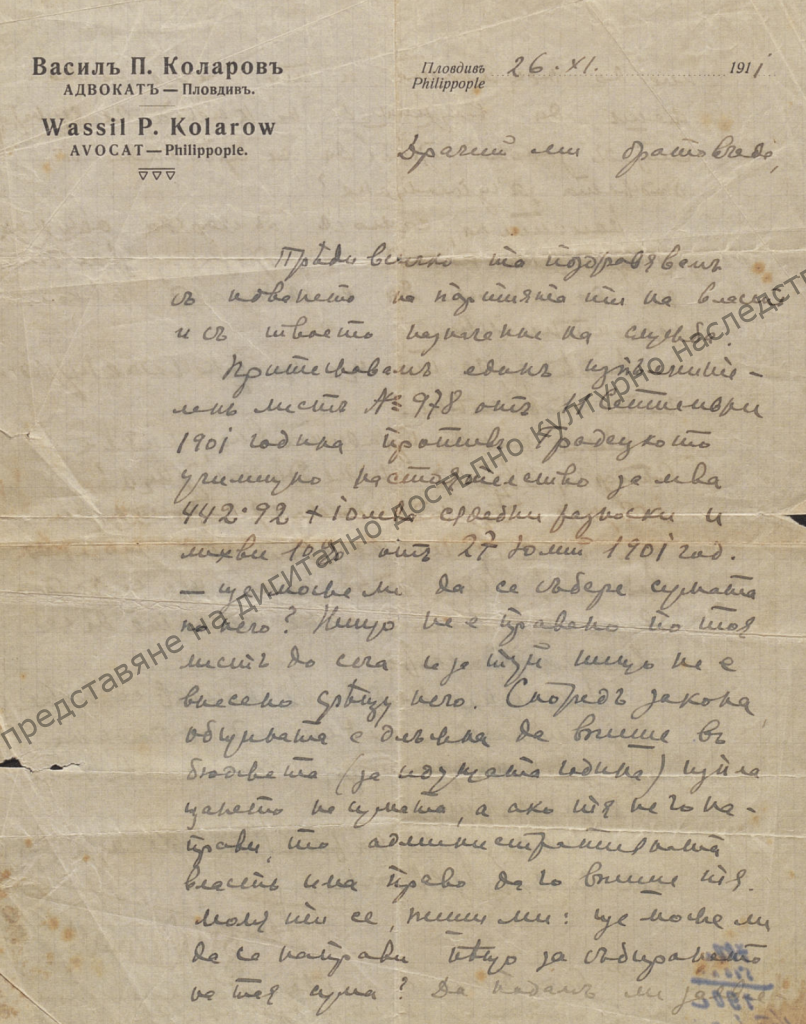 Василъ П. Коларовъ
АДВОКАТЪ — Пловдивъ.
Wassil P. Kolarow
AVOCAT — Philippople.
Пловдивъ
Philippople
26. XI. 1911
Драгий ми братовчеде,
Прѣди всичко те поздравявамъ
съ идването на партията ти на власть
и съ твоето назначение на служба.
Притежавамъ единъ изпълните-
ленъ листъ № 978 отъ септемврий
1901 година противъ Градецкото
училищно настоятелство за лева
442·92 + 10 лева сѫдебни разноски и
лихви 10% отъ 27 Юлий 1901 год.
— ще може ли да се събере сумата
по него? Нищо не е правено по тоя
листъ до сега и за туй нищо не е
внесено срѣщу него. Споредъ закона
общината е длъжна да впише въ
бюджета (за идущата година) изпла
щането на сумата, а ако тя не го на-
прави, то административната
власть има право да го впише тя.
Моля ти се, пиши ми: ще може ли
да се направи нѣщо за събирането
на тая сума? Да подамъ ли
представяне на дигитално достъпно културно наследство